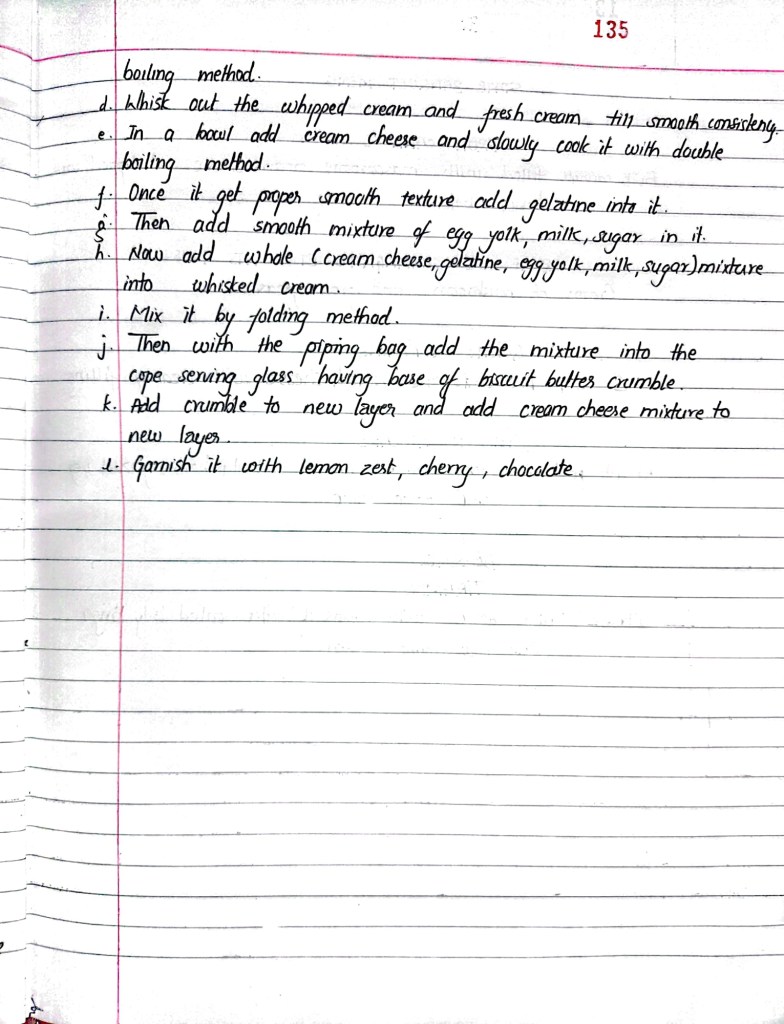 135
boiling method.
d. Whisk out the whipped cream and fresh cream till smooth consisteny.
e. In a bowl add cream cheese and slowly cook it with double
boiling method.
f. Once it get proper smooth texture add gelatine into it.
g. Then add smooth mixture of egg yolk, milk, sugar in it.
h. Now add whole (cream cheese, gelatine, egg yolk, milk, sugar) mixture
into whisked cream.
i. Mix it by folding method.
j. Then with the piping bag add the mixture into the
cope serving glass having base of biscuit butter crumble.
k. Add crumble to new layer and add cream cheese mixture to
new layer.
l. Garnish it with lemon zest, cherry, chocolate.